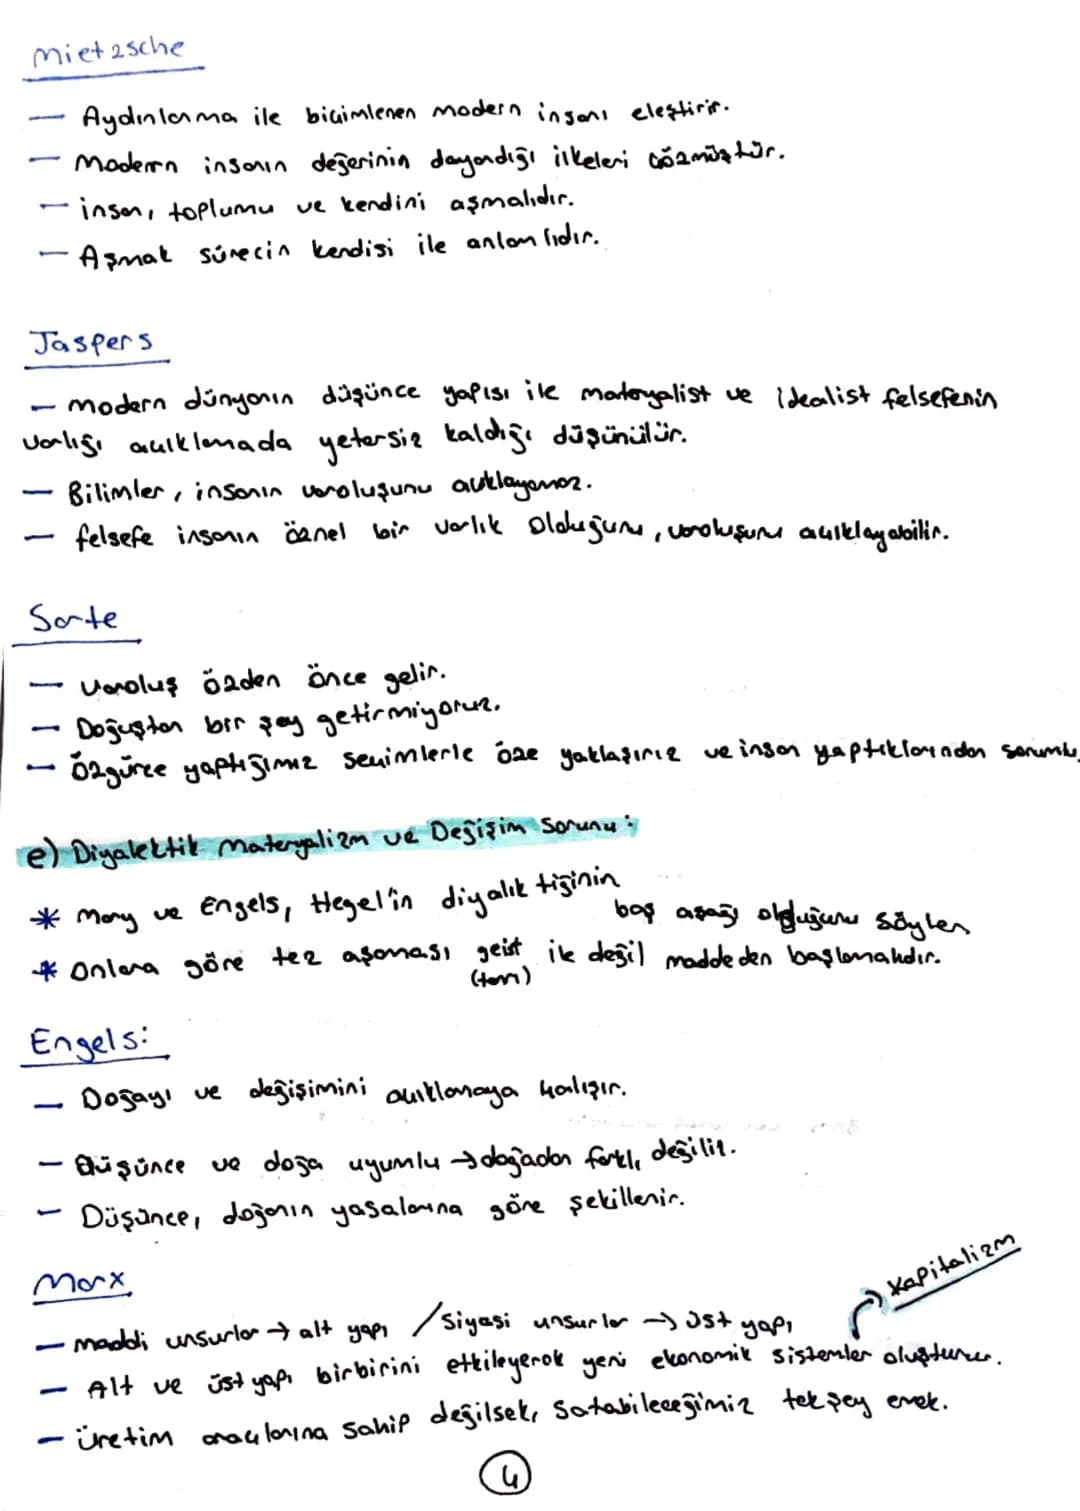 Nietzsche
— Aydınlanma ile biçimlenen modern insanı eleştirir.
— Modern insanın değerinin dayandığı ilkeleri çözmüştür.
— insan, toplumu ve kendini aşmalıdır.
— Aşmak sürecin kendisi ile anlamlıdır.
Jaspers
— modern dünyanın düşünce yapısı ile materyalist ve idealist felsefenin
varlığı açıklamada yetersiz kaldığı düşünülür.
— Bilimler, insanın varoluşunu açıklayamaz.
— felsefe insanın öznel bir varlık olduğunu, varoluşunu açıklayabilir.
Sarte
— Varoluş özden önce gelir.
— Doğuştan bir şey getirmiyoruz.
— Özgürce yaptığımız seçimlerle öze yaklaşırız ve insan yaptıklarından sorumlu
e) Diyalektik materyalizm ve Değişim Sorunu:
* Marx ve Engels, Hegel'in diyalıktiğinin
baş aşağı olduğunu söyler
* Onlara göre tez aşaması geist ile değil maddeden başlamalıdır.
(tanrı)
Engels:
— Doğayı ve değişimini açıklamaya çalışır.
— Düşünce ve doğa uyumlu → doğadan farklı değiliz.
— Düşünce, doğanın yasalarına göre şekillenir.
Marx
Kapitalizm
— maddi unsurlar → alt yapı / Siyasi unsurlar → üst yapı
— Alt ve üst yapı birbirini etkileyerek yeni ekonomik sistemler oluşturur.
— üretim araçlarına sahip değilsek, satabileceğimiz tek şey emek.
4